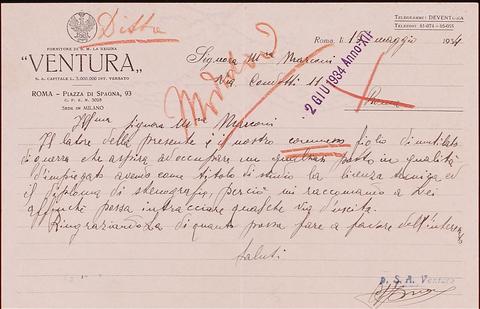 Ditta
TELEGRAMMI: DEVENTURA
TELEFONI: 61-074 - 65-055
FORNITORE DI S. M. LA REGINA
"VENTURA"
S. A. CAPITALE L. 3.000.000 INT. VERSATO
ROMA - PIAZZA DI SPAGNA, 93
C. P. E. N. 3028
SEDE IN MILANO
Roma, li 15 maggio 1934
Signora Mra Marconi
Via Condotti 11
Roma
2 GIU 1934 Anno XII
Ill/ma Signora Mra Marconi
Il latore della presente è il nostro commesso figlio di mutilato
di guerra che aspira ad occupare un qualsiasi posto in qualità
d'impiegato avendo come titolo di studio la licenza tecnica ed
il diploma di stenografo, perciò mi raccomando a Lei
affinché possa intracciare qualche via d'uscita.
Ringraziandola di quanto possa fare a favore dell'interess.
Saluti
p. S. A. Ventura